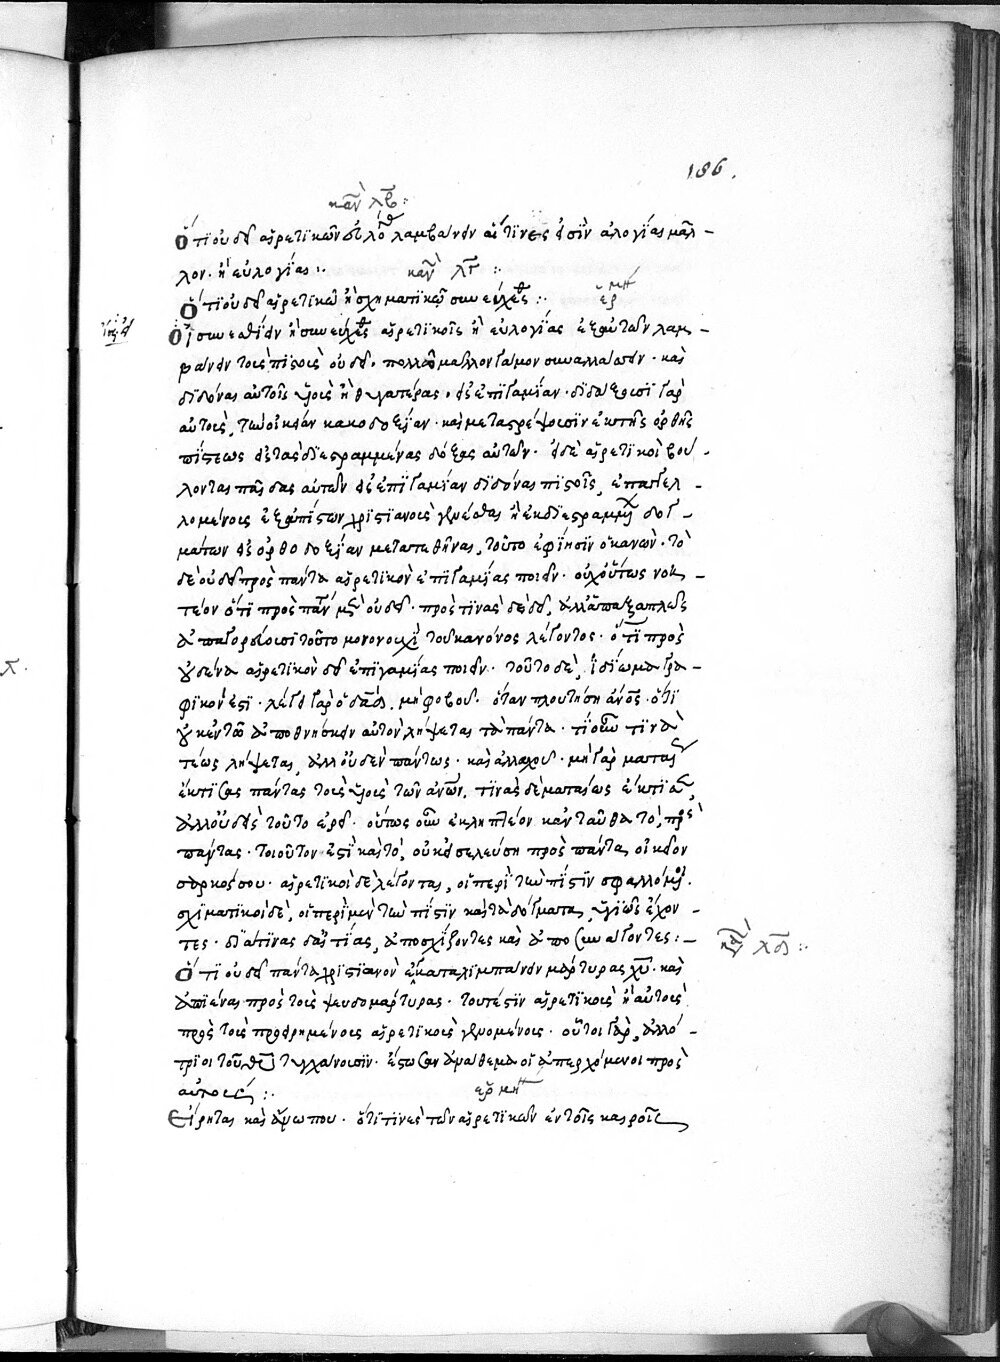 186.
καν λβ:
Ὅτι οὐ δεῖ αἱρετικῶν εὐλογίας λαμβάνειν αἵτινες εἰσὶν ἀλογίαι μᾶλ-
λον. ἢ εὐλογίαι:
καν λγ:
Ὅτι οὐ δεῖ αἱρετικοῖς ἢ σχηματικοῖς συνεύχεσθαι:
ἑρμη
Οἱ συνεσθίειν ἢ συνεύχεσθαι αἱρετικοῖς ἢ εὐλογίας ἐξ αὐτῶν λαμ-
βάνειν τοῖς πιστοῖς οὐ δεῖ. πολλῷ μᾶλλον γάμον συναλλάσσειν. καὶ
διδόναι αὐτοῖς υἱοὺς ἢ θυγατέρας. εἰς ἐπιγαμίαν. διδάξουσι γὰρ
αὐτοὺς, τὴν οἰκείαν κακοδοξίαν. καὶ μεταστρέψουσιν ἐκ τῆς ὀρθῆς
πίστεως εἰς τὰς διεστραμμένας δόξας αὐτῶν. εἰ δὲ αἱρετικοὶ βού-
λονται παῖδας αὐτῶν εἰς ἐπιγαμίαν διδόναι πιστοῖς, ἐπαγγελ-
λομένοις ἐξ ἀπίστων χριστιανοὺς γενέσθαι ἢ ἐκ διεστραμμένων δογ-
μάτων εἰς ὀρθοδοξίαν μετατεθῆναι, τοῦτο ἐφίησιν ὁ κανών. τὸ
δὲ οὐ δεῖ πρὸς πάντα αἱρετικὸν ἐπιγαμίας ποιεῖν. οὐχ οὕτως νοη-
τέον ὅτι πρὸς πάντας μὲν οὐ δεῖ. πρὸς τινὰς δὲ δεῖ, ἀλλ' ἅπαξαπλῶς
ἀπαγορεύουσι τοῦτο μονονουχὶ τοῦ κανόνος λέγοντος. ὅτι πρὸς
οὐδένα αἱρετικὸν δεῖ ἐπιγαμίας ποιεῖν. τοῦτο δὲ, ἰδίωμα γρα-
φικόν ἐστι. λέγει γὰρ ὁ δαδ. μὴ φοβοῦ. ὅταν πλουτήσῃ ἄνος. ὅτι
οὐκ ἐν τῷ ἀποθνήσκειν αὐτὸν λήψεται τὰ πάντα. τί οὖν τινὰ
τέως λήψεται, ἀλλ' οὐδὲν πάντως. καὶ ἀλλαχοῦ. μὴ γὰρ ματαίως
ἔκτισας πάντας τοὺς υἱοὺς τῶν ἀνων. τινὰς δὲ ματαίως ἔκτισας,
ἀλλ' οὐδεὶς τοῦτο ἐρεῖ. οὕτως οὖν ἐκληπτέον κἀνταῦθα τὸ, πρὸς
πάντας. τοιοῦτον ἐστὶ καὶ τὸ, οὐκ εἰσελεύσῃ πρὸς πάντα οἰκεῖον
σαρκός σου. αἱρετικοὶ δὲ λέγονται, οἱ περὶ τὴν πίστιν σφαλλόμενοι.
σχιματικοὶ δὲ, οἱ περὶ μὲν τὴν πίστιν καὶ τὰ δόγματα, ὑγιῶς ἔχον-
τες. διά τινας δὲ αἰτίας, ἀποσχίζοντες καὶ ἀποσυνάγοντες:-
καν λδ:
Ὅτι οὐ δεῖ πάντα χριστιανὸν ἐγκαταλιμπάνειν μάρτυρας χυ. καὶ
ἀπιέναι πρὸς τοὺς ψευδομάρτυρας. τουτέστιν αἱρετικοὺς ἢ αὐτοὺς
πρὸς τοὺς προειρημένους αἱρετικοὺς γενομένους. οὗτοι γὰρ, ἀλλό-
τριοι τοῦ θυ τυγχάνουσιν. ἔστωσαν ἀνάθεμα οἱ ἀπερχόμενοι πρὸς
αὐτούς:
ἑρμη
Εἴρηται καὶ ἄνω που. ὅτι τινὲς τῶν αἱρετικῶν ἐν τοῖς καιροῖς